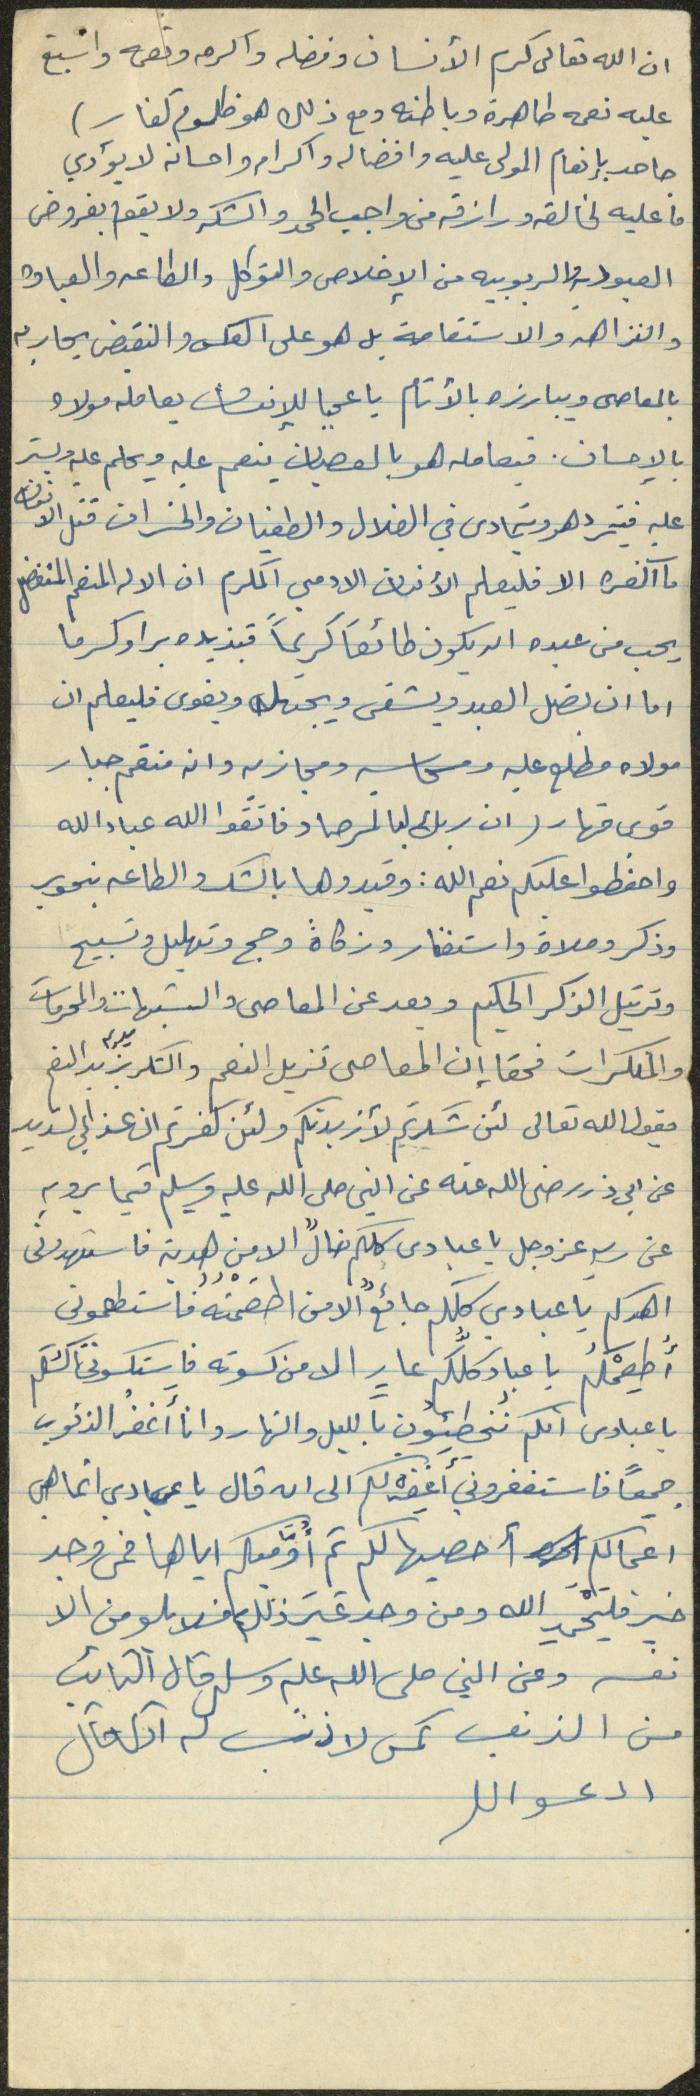 ان الله تعالى كرم الأنسان وفضله وأكرمه ونعمه واسبغ
عليه نعمه ظاهرة وباطنه ومع ذلك هو ظلوم كفار )
جاحد بإنعام المولى عليه وافضاله واكرامه واحسانه لا يؤدي
ما عليه لخالقه ورازقه من واجب الحمد والشكر ولا يقوم بفروض
العبوديه والربوبيه من الإخلاص والتوكل والطاعه والعباده
والنزاهه والاستقامة بل هو على العكس والنقيض يحاربه
بالمعاصى ويبارزه بالأثام يا عجبا للإنسان يعامله مولاه
بالإحسان . فيعامله هو بالعصيان ينعم عليه ويحلم عليه ويستر
عليه فيتمرد هو ويتمادى في الضلال والطغيان والخسران قتل الانسان
ما اكفره الا فليعلم الأنسان الادمي المكرم ان الاله المنعم المتفضل
يحب من عبده ان يكون طائعاً كريماً فيزيده برا وكرما
اما ان يضل العبد ويشقى ويجهل ويغوى فليعلم ان
مولاه مطلع عليه ومحاسبه ومجازيه وانه منتقم جبار
قوي قهار ( ان ربك لبالمرصاد فاتقوا الله عباد الله
واحفظوا عليكم نعم الله : وقيدوها بالشكر والطاعه
وذكر وصلاة واستغفار وزكاة وحج وتهليل وتسبيح
وترتيل الذكر الحكيم وبعد عن المعاصى والشبهات والمحرمات
والمنكرات فحقا إن المعاصى تزيل النعم والشكر يزيد النعم
يقول الله تعالى لئن شكرتم لأزيدنكم ولئن كفرتم ان عذابي لشديد
عن ابي ذر رضى الله عنه عن النبي صلى الله عليه وسلم فيما يرويه
عن ربه عز وجل يا عبادي كلكم ضالٌ الا من هديته فاستهدونى
اهدكم يا عبادي كلكم جائعٌ الا من اطعمْتُهُ فاستطعمونى
أُطعِمْكُم يا عباد كلُّكم عارٍ الا من كسوته فاستكسونى أكسكم
يا عبادى انكم تُخطِئِوُن بالليل والنهار وانا أَغفُر الذنوب
جميعاً فاستغفروني أَغفِرْ لكم الى ان قال يا عبادي انما هي
اعمالكم أحصيها لكم ثم أوَفيكم اياها فمن وجد
خير فليَحْمَدِ الله ومن وجد غيَر ذلك فلا يلومن الا
نفسه وعن النبي صلى الله عليه وسلم قال التائب
من الذنب كمن لا ذنب له او كما قال
ادعوا الله